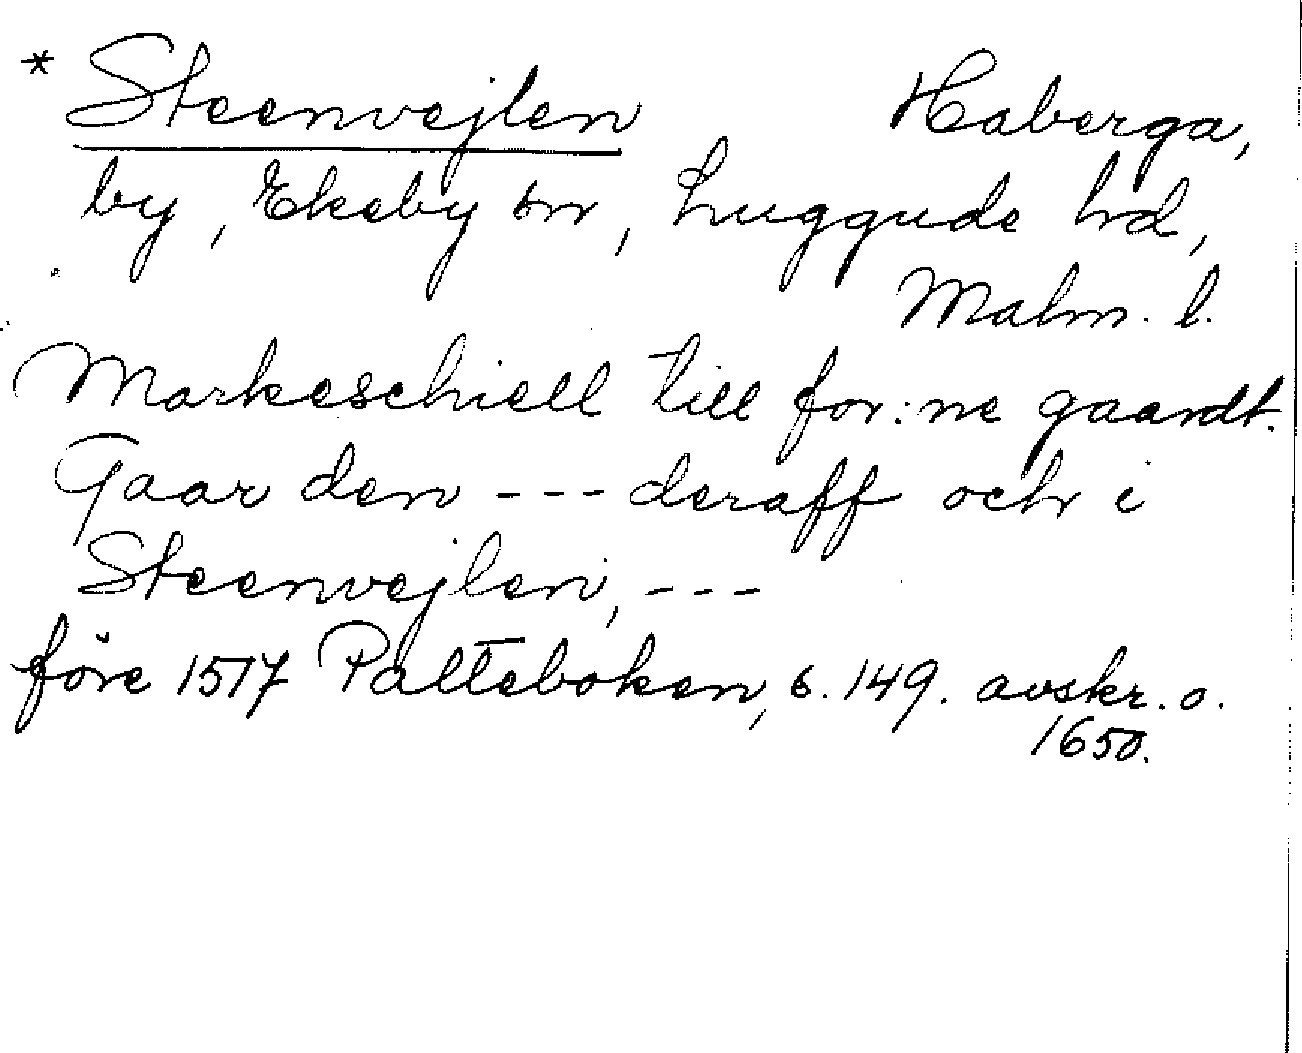 * Steenvejlen Haberga,
by, Ekeby sn, Luggude hd,
Malm. l.
Markeschiell till for:ne gaardt.
Gaar den --- deraff och i
Steenvejlen, ---
före 1517 Palteboken, s. 149. avskr. o.
1650.